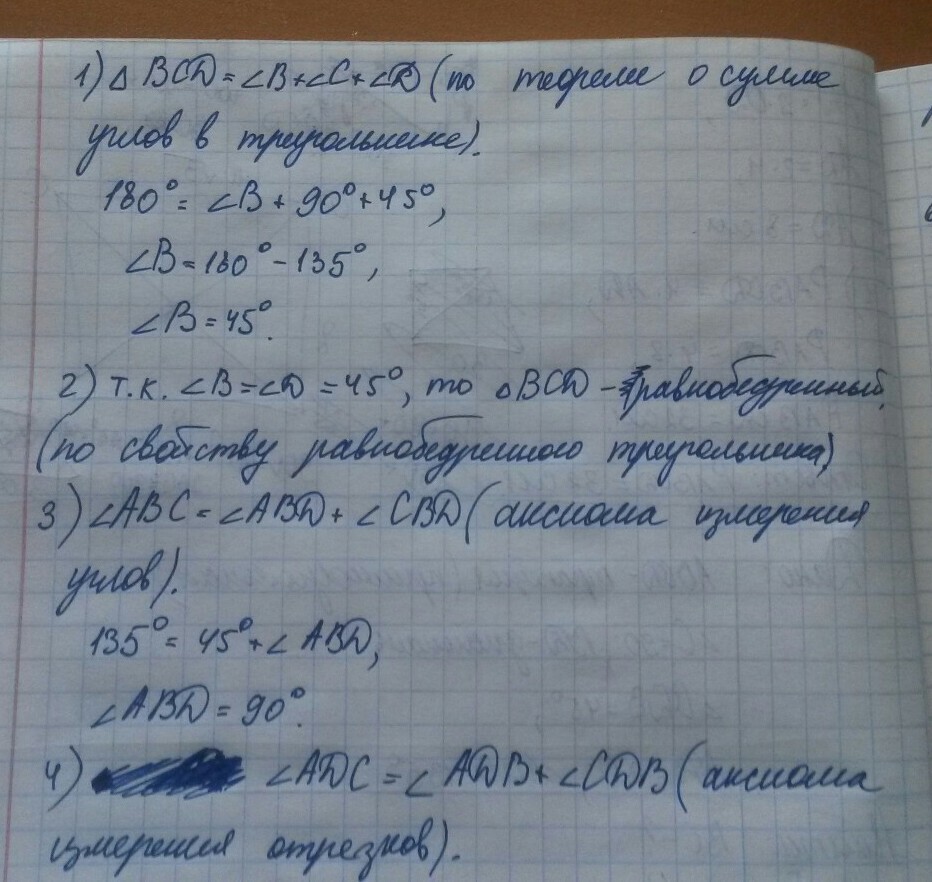 1) △ BCD = ∠B+∠C+∠D (по теореме о сумме
углов в треугольнике).
180° = ∠B + 90° + 45°,
∠B = 180° - 135°,
∠B = 45°.
2) т.к. ∠B = ∠D = 45°, то △BCD - равнобедренный,
(по свойству равнобедренного треугольника)
3) ∠ABC = ∠ABD + ∠CBD (аксиома измерения
углов).
135° = 45° + ∠ABD,
∠ABD = 90°.
4) ∠ADC = ∠ADB + ∠CDB (аксиома
измерения отрезков).